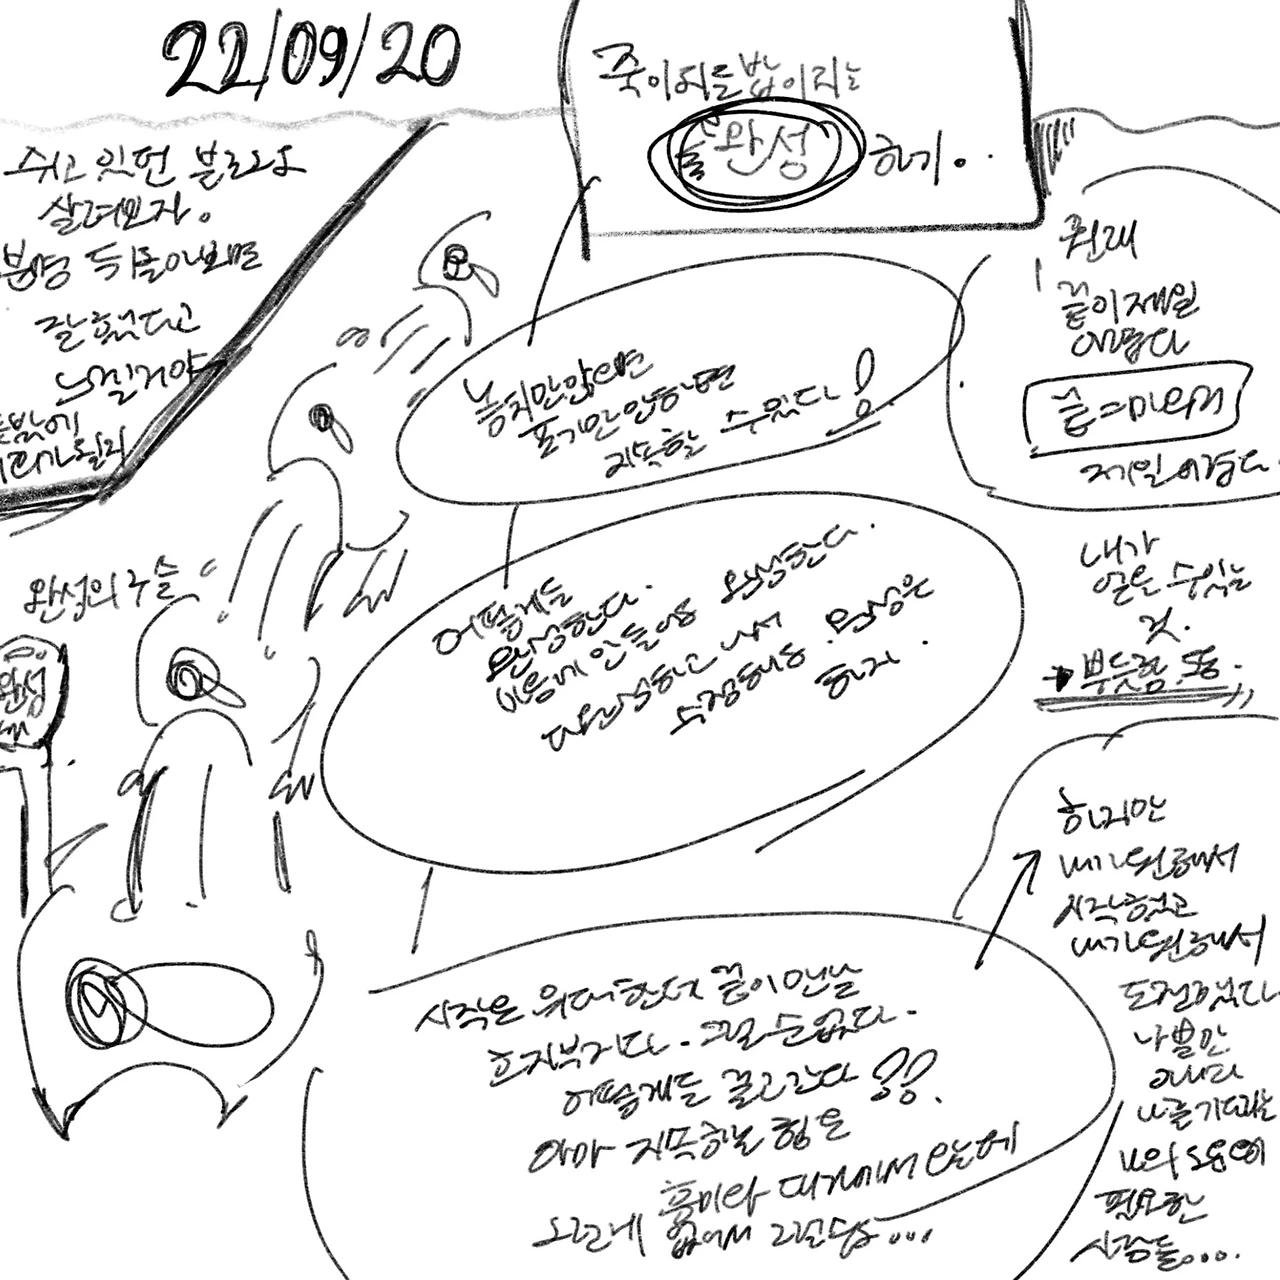 22/09/20
죽이되든밥이되는
완성
하기..
쉬고 있던 블로그
살려보자.
분명 뒤돌아보면
잘했다고
느낄거야
원래
끝이제일
어렵다
끝=마무리
제일어렵다.
놓지만않으면
포기만안하면
지속할 수있다!
내가
얻을 수있는
것.
뿌듯함 등.
완성의구슬
완성
어떻게든
완성한다.
마음에 안들어도 완성한다.
다완성하고 나서
수정해도 완성은
하자.
하지만
내가원해서
시작했고
내가원해서
도전했다
나뿐만
아니라
나를기다리는
나의도움이
필요한
사람들...
시작은 위대한데 끝이 맨날
흐지부지다. 그럴 순없다.
어떻게든 끌고간다 !!.
아마 지속하는 힘은
흥미와 대가에서 오는데
그런게 없어서 그런듯...